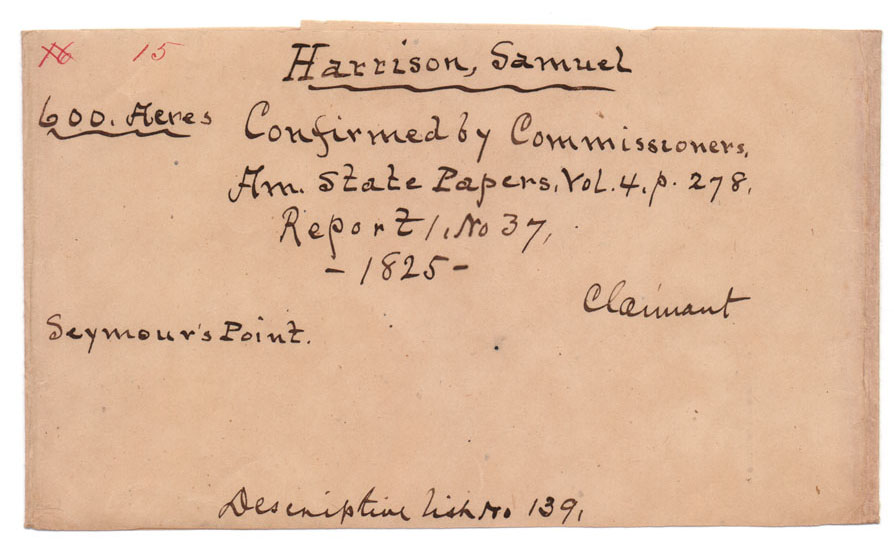 16 15
Harrison, Samuel
600. Acres
Confirmed by Commissioners,
Am. State Papers, Vol. 4, p. 278,
Report 1, No 37,
- 1825 -
Claimant
Seymour's Point.
Descriptive list No 139,